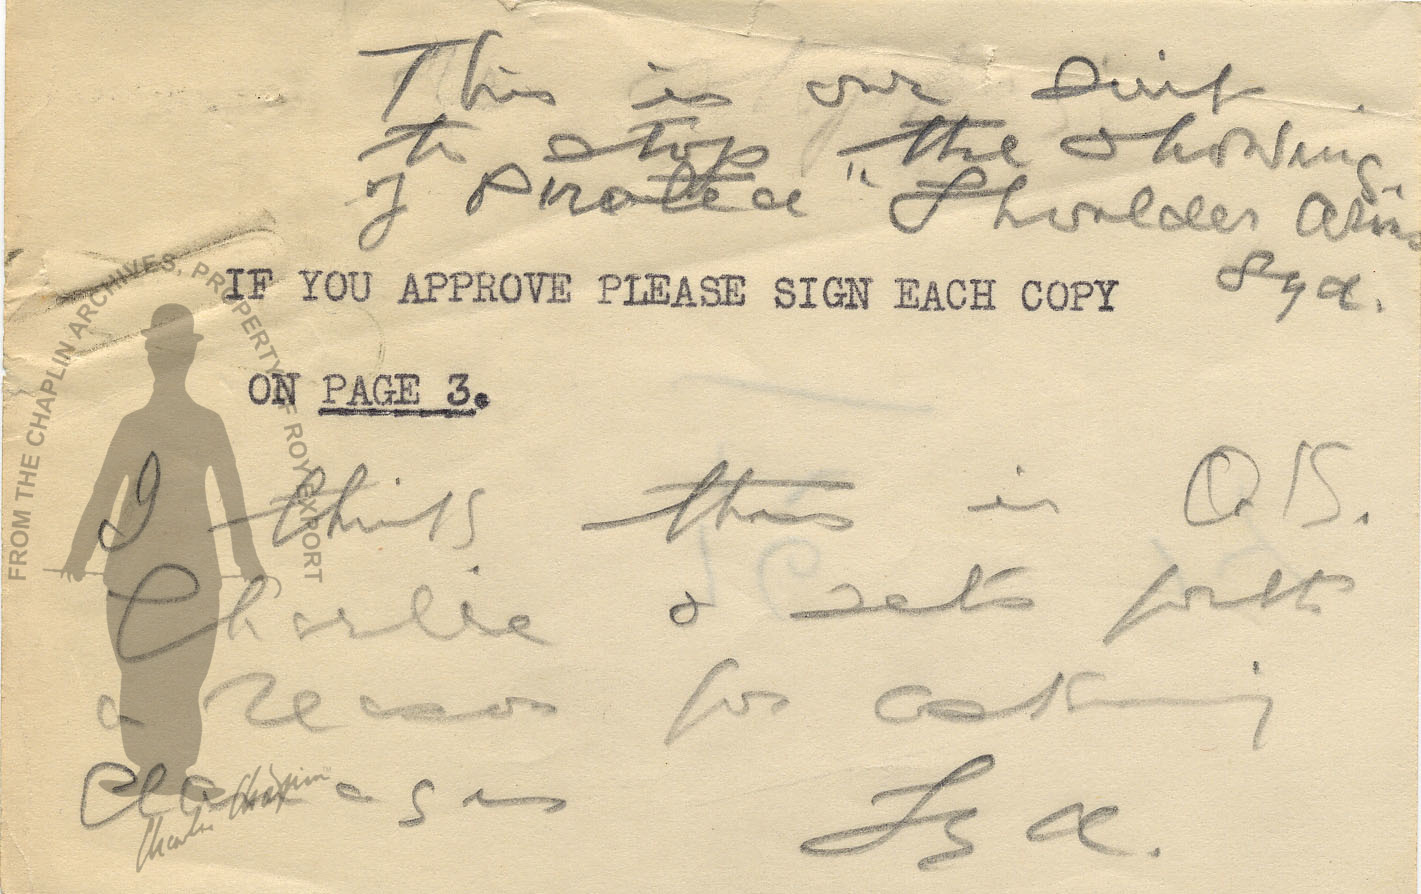 This is our suit
to stop the showing
of pirated "Shoulder Arms
Syd.
IF YOU APPROVE PLEASE SIGN EACH COPY
ON PAGE 3.
I think this is O.K.
Charlie & sets forth
a reason for asking
damages
Syd.
FROM THE CHAPLIN ARCHIVES, PROPERTY OF ROY EXPORT
Charlie Chaplin